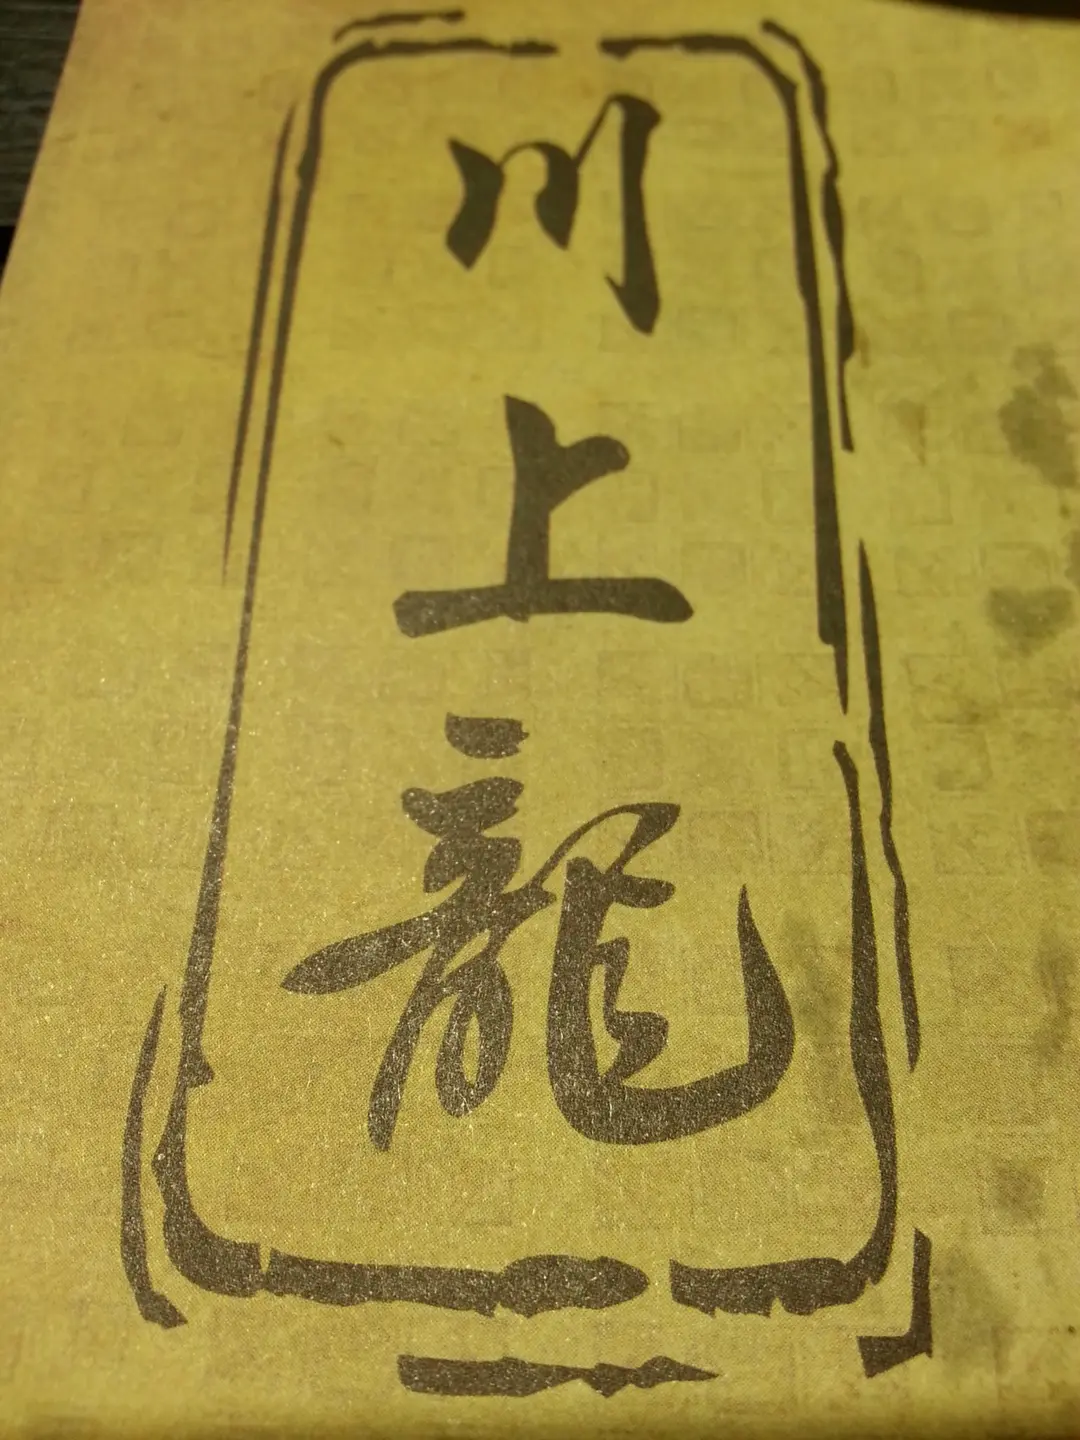 川上龍